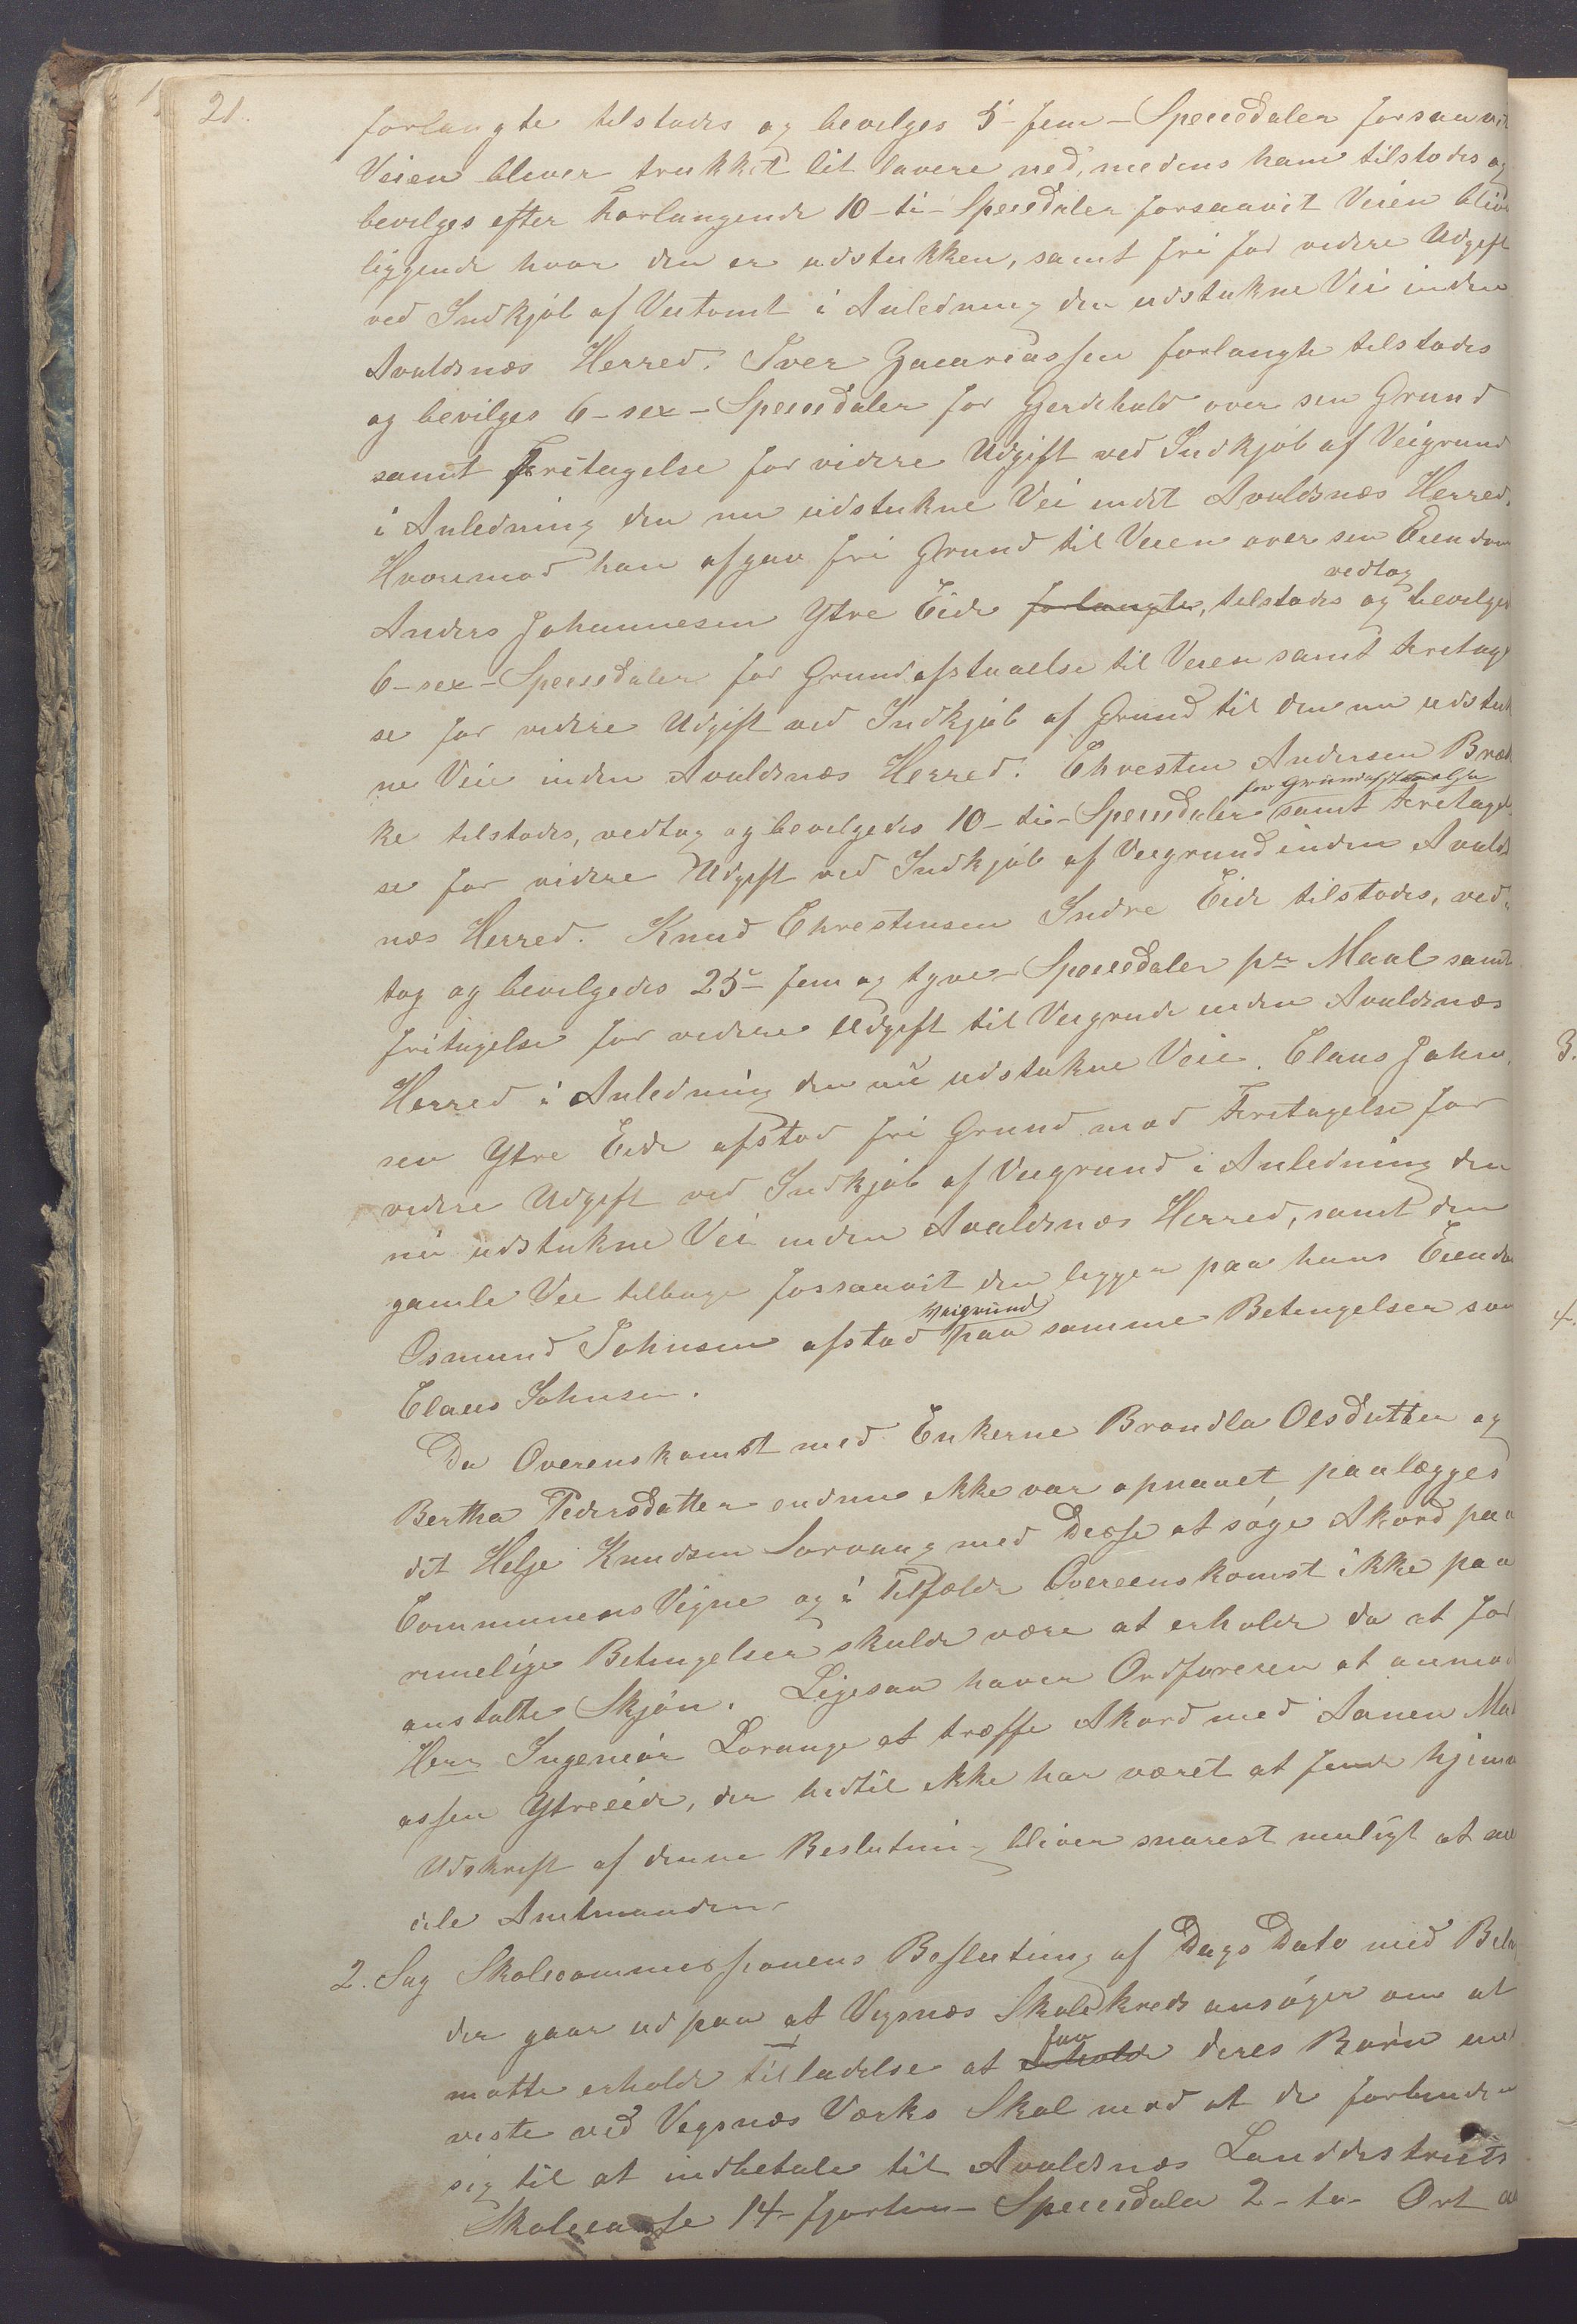 21.
forlangte tilstodes og bevilges 5 - fem - Speciedaler forsaavit
Veien bliver trukket lit lavere ned, medens ham tilstodes og
bevilges efter Forlangende 10 - ti - Speciedaler forsaavit Veien bliver
liggende hvor den er udstukken, samt fri for videre Udgift
ved Indkjøb af Veitomt i Anledning den udstukne Vei inden
Avaldsnæs Herred. Iver Zacariassen forlangte tilstodes
og bevilges 6 - sex - Speciedaler for Gjerdehold over sin Grund
samt Fritagelse for videre Udgift ved Indkjøb af Veigrund
i Anledning den nu udstukne Vei indet Avaldsnæs Herred,
Hvorimod han afgav fri Grund til Veien over sin Eiendom
Anders Johannesen Ytre Eide forlangte, tilstodes og vedtog bevilged
6 - sex - Speciedaler for Grundafstaaelse til Veien samt Fritagel
se for videre Udgift ved Indkjøb af Grund til den nu udstuk
ne Veie inden Avaldsnæs Herred. Christen Andersen Bræk
ke tilstodes, vedtog og bevilgedes 10 - ti - Speciedaler for Grundafstaaelse samt Fritagel
se for videre Udgift ved Indkjøb af Veigrund inden Avalds
næs Herred. Knud Christensen Indre Eide tilstodes, ved
tog og bevilgedes 25 - fem og tyve - Speciedaler pr Maal samt
fritagelse for videre Udgift til Veigrund inden Avaldsnæs
Herred i Anledning den nu udstukne Veie. Claus John
sen Ytre Eide afstod fri Grund mod Fritagelse for
videre Udgift ved Indkjøb af Veigrund i Anledning den
nu udstukne Vei inden Avaldsnæs Herred, samt den
gamle Vei tilbage forsaavit den ligger paa hans Eiendom
Osmund Johnsen afstod Veigrund paa samme Betingelser som
Claus Johnsen.
Da Overenskomst med Enkerne Brandla Olsdatter og
Bertha Pedersdatter endnu ikke var opnaaet paalægges
det Helje Knudsen Sørvaag med Disse at søge Akord paa
Communens Vegne og i Tilfælde Overeenskomst ikke paa
rimelige Betingelser skulde være at erholde da at for
anstalte Skjøn. Ligesaa haver Ordføreren at anmod
Herr Ingeniør Lorange at træffe Akord med Aanen Mat
assen Ytreeide, der hidtil ikke har været at finde hjemme
Udskrift af denne Beslutning bliver snarest muligt at med
dele Amtmanden
2. Sag Skolecommissionens Beslutning af Dags Dato med Bilag
der gaar ud paa at Vigsnæs Skolekreds ansøger om at
maatte erholde tilladelse at erholde faa deres Børn und
viste ved Vigsnæs Værks Skol mod at de forbinder
sig til at indbetale til Avaldsnæs Landdistricts
Skolecasse 14 - fjorten - Speciedaler 2 - to - Ort
3.
4.